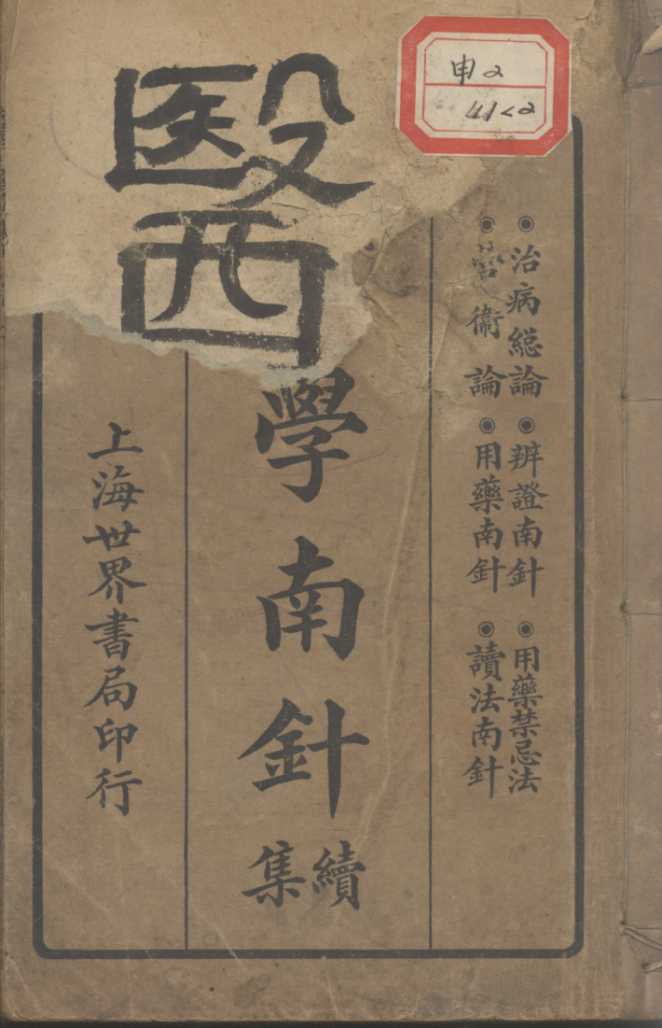 申2
◉治病緫論◉辨證南針◉用藥禁忌法
◉營衛論◉用藥南針◉讀法南針
醫學南針
續集
上海世界書局印行